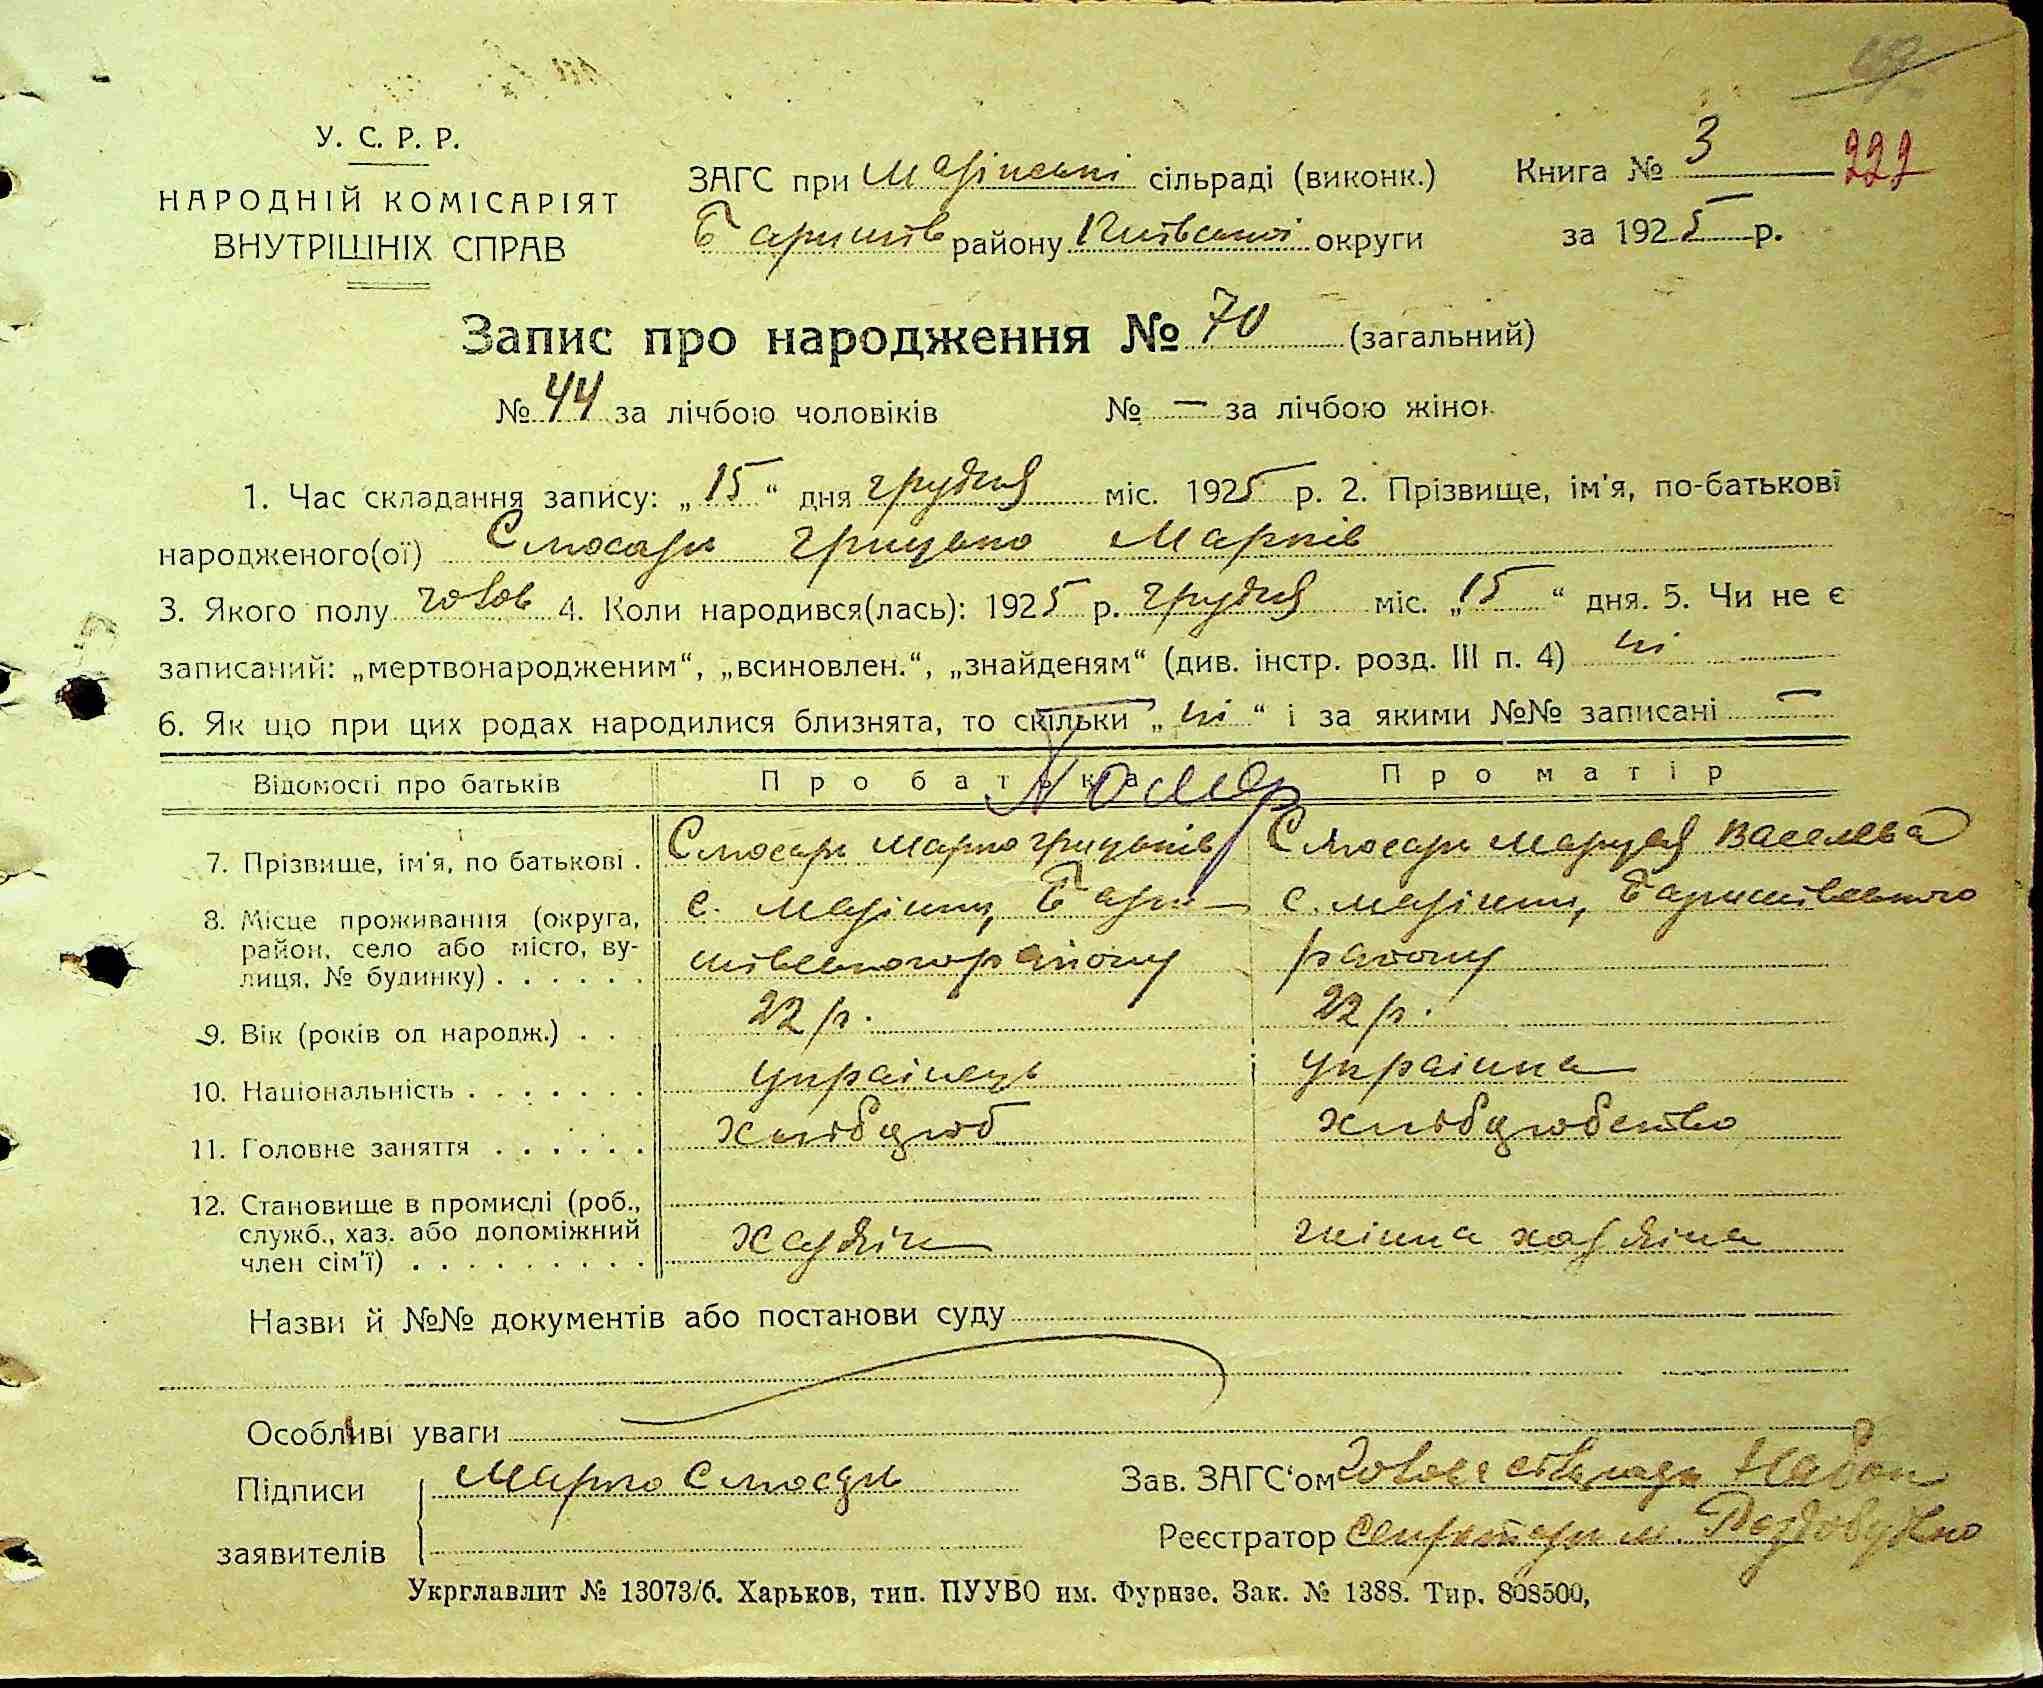 У. С. Р. Р.
НАРОДНІЙ КОМІСАРІЯТ
ВНУТРІШНІХ СПРАВ
ЗАГС при сільраді (виконк.)
Баришів району Київської округи
Книга № 3 222
за 1925 р.
Запис про народження № 70 (загальний)
№ 44 за лічбою чоловіків № — за лічбою жінок
1. Час складання запису: „15“ дня грудня міс. 1925 р. 2. Прізвище, ім'я, по-батькові
народженого(ої) Слюсарь Грицько Марків
3. Якого полу чолов 4. Коли народився(лась): 1925 р. грудня міс. „15“ дня. 5. Чи не є
записаний: „мертвонародженим“, „всиновлен.“, „знайденям“ (див. інстр. розд. III п. 4) ні
6. Як що при цих родах народилися близнята, то скільки „ні“ і за якими №№ записані —
Відомості про батьків Про батька Про матір
Помер
7. Прізвище, ім'я, по батькові . Слюсарь Марко Грицьків Слюсарь Маруся Василева
8. Місце проживання (округа, с. Марінки, Бари- с. Марінки, Баришівського
район, село або місто, ву- шівського району району
лиця, № будинку) . . . . . .
9. Вік (років од народж.) . . 22 р. 22 р.
10. Національність . . . . . . . українець українка
11. Головне заняття . . . . . . хлібороб хліборобство
12. Становище в промислі (роб.,
служб., хаз. або допоміжний хазяін жінка хазяіна
член сім'ї) . . . . . . . . .
Назви й №№ документів або постанови суду
Особливі уваги
Підписи Марко Слюсарь
заявителів
Зав. ЗАГС'ом Голова сільради
Реєстратор секретарь
Укрглавлит № 13073/б. Харьков, тип. ПУУВО им. Фрунзе. Зак. № 1388. Тир. 808500,